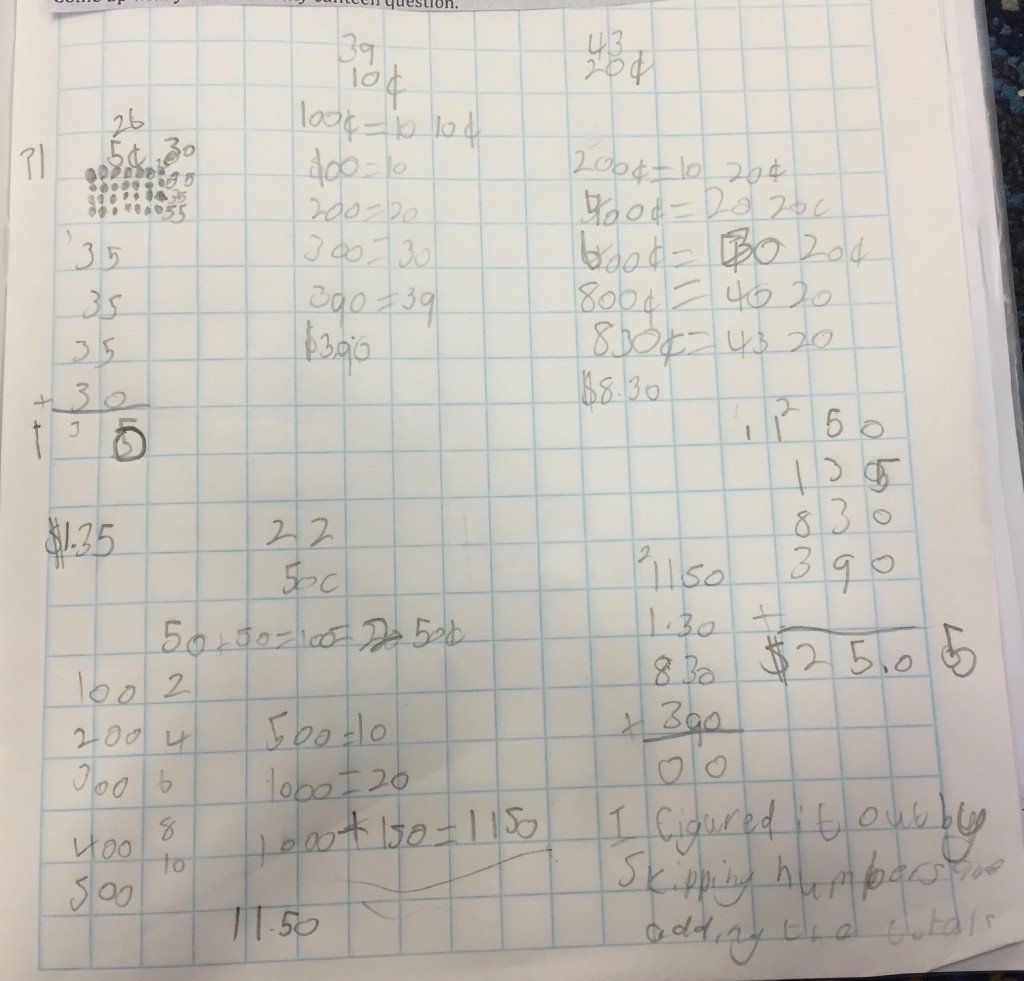 canteen question.
39
10¢
100¢=10 10¢
100=10
200=20
300=30
390=39
$3.90
43
20¢
200¢=10 20¢
400¢=20 20c
600¢=30 20¢
800¢=40 20
830¢=43 20
$8.30
26
5¢ 30
35
35
35
+ 30
135
$1.35
22
50c
50+50=100= 50¢
100 2
200 4
300 6
400 8
500 10
500=10
1000=20
1000+150=1150
11.50
1150
1.30
830
+ 390
00
1150
135
830
390
+
$25.05
I figured it out by
Skipping numbers
adding the totals